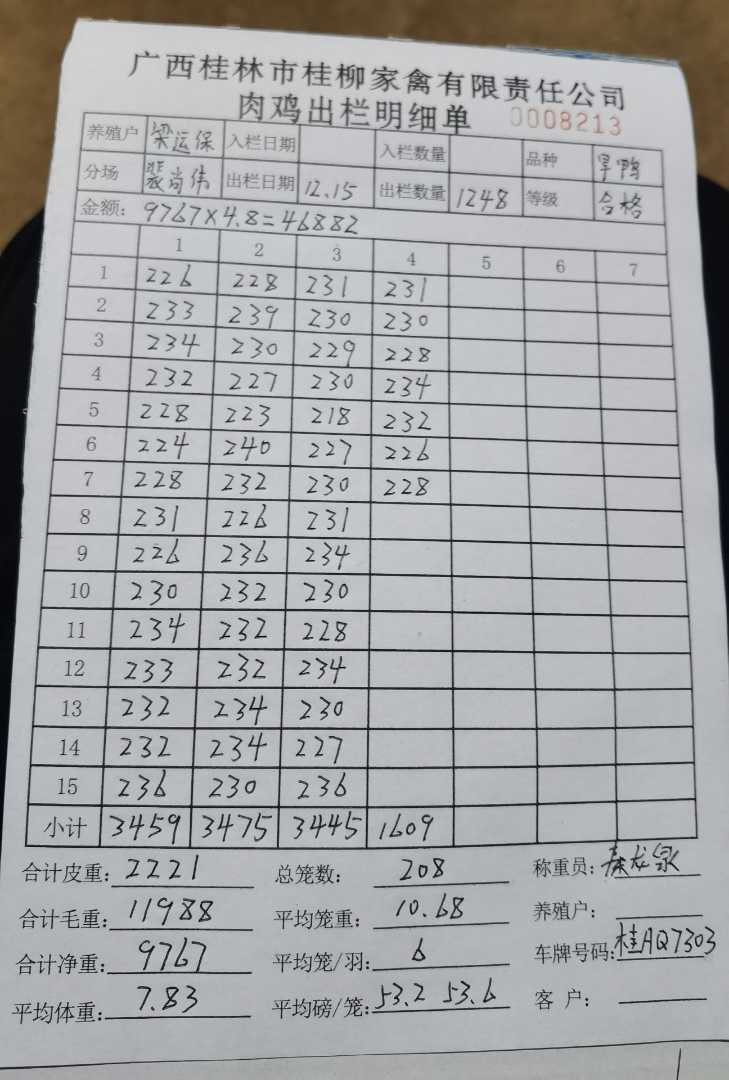 广西桂林市桂柳家禽有限责任公司
肉鸡出栏明细单 0008213
养殖户 梁运保 入栏日期 入栏数量 品种 旱鸭
分场 裴尚伟 出栏日期 12.15 出栏数量 1248 等级 合格
金额: 9767×4.8=46882
1 2 3 4 5 6 7
1 226 228 231 231
2 233 239 230 230
3 234 230 229 228
4 232 227 230 234
5 228 223 218 232
6 224 240 227 226
7 228 232 230 228
8 231 226 231
9 226 236 234
10 230 232 230
11 234 232 228
12 233 232 234
13 232 234 230
14 232 234 227
15 236 230 236
小计 3459 3475 3445 1609
合计皮重: 2221 总笼数: 208 称重员: 秦龙
合计毛重: 11988 平均笼重: 10.68 养殖户:
合计净重: 9767 平均笼/羽: 6 车牌号码: 桂AQ7303
平均体重: 7.83 平均磅/笼: 53.2 53.6 客户: